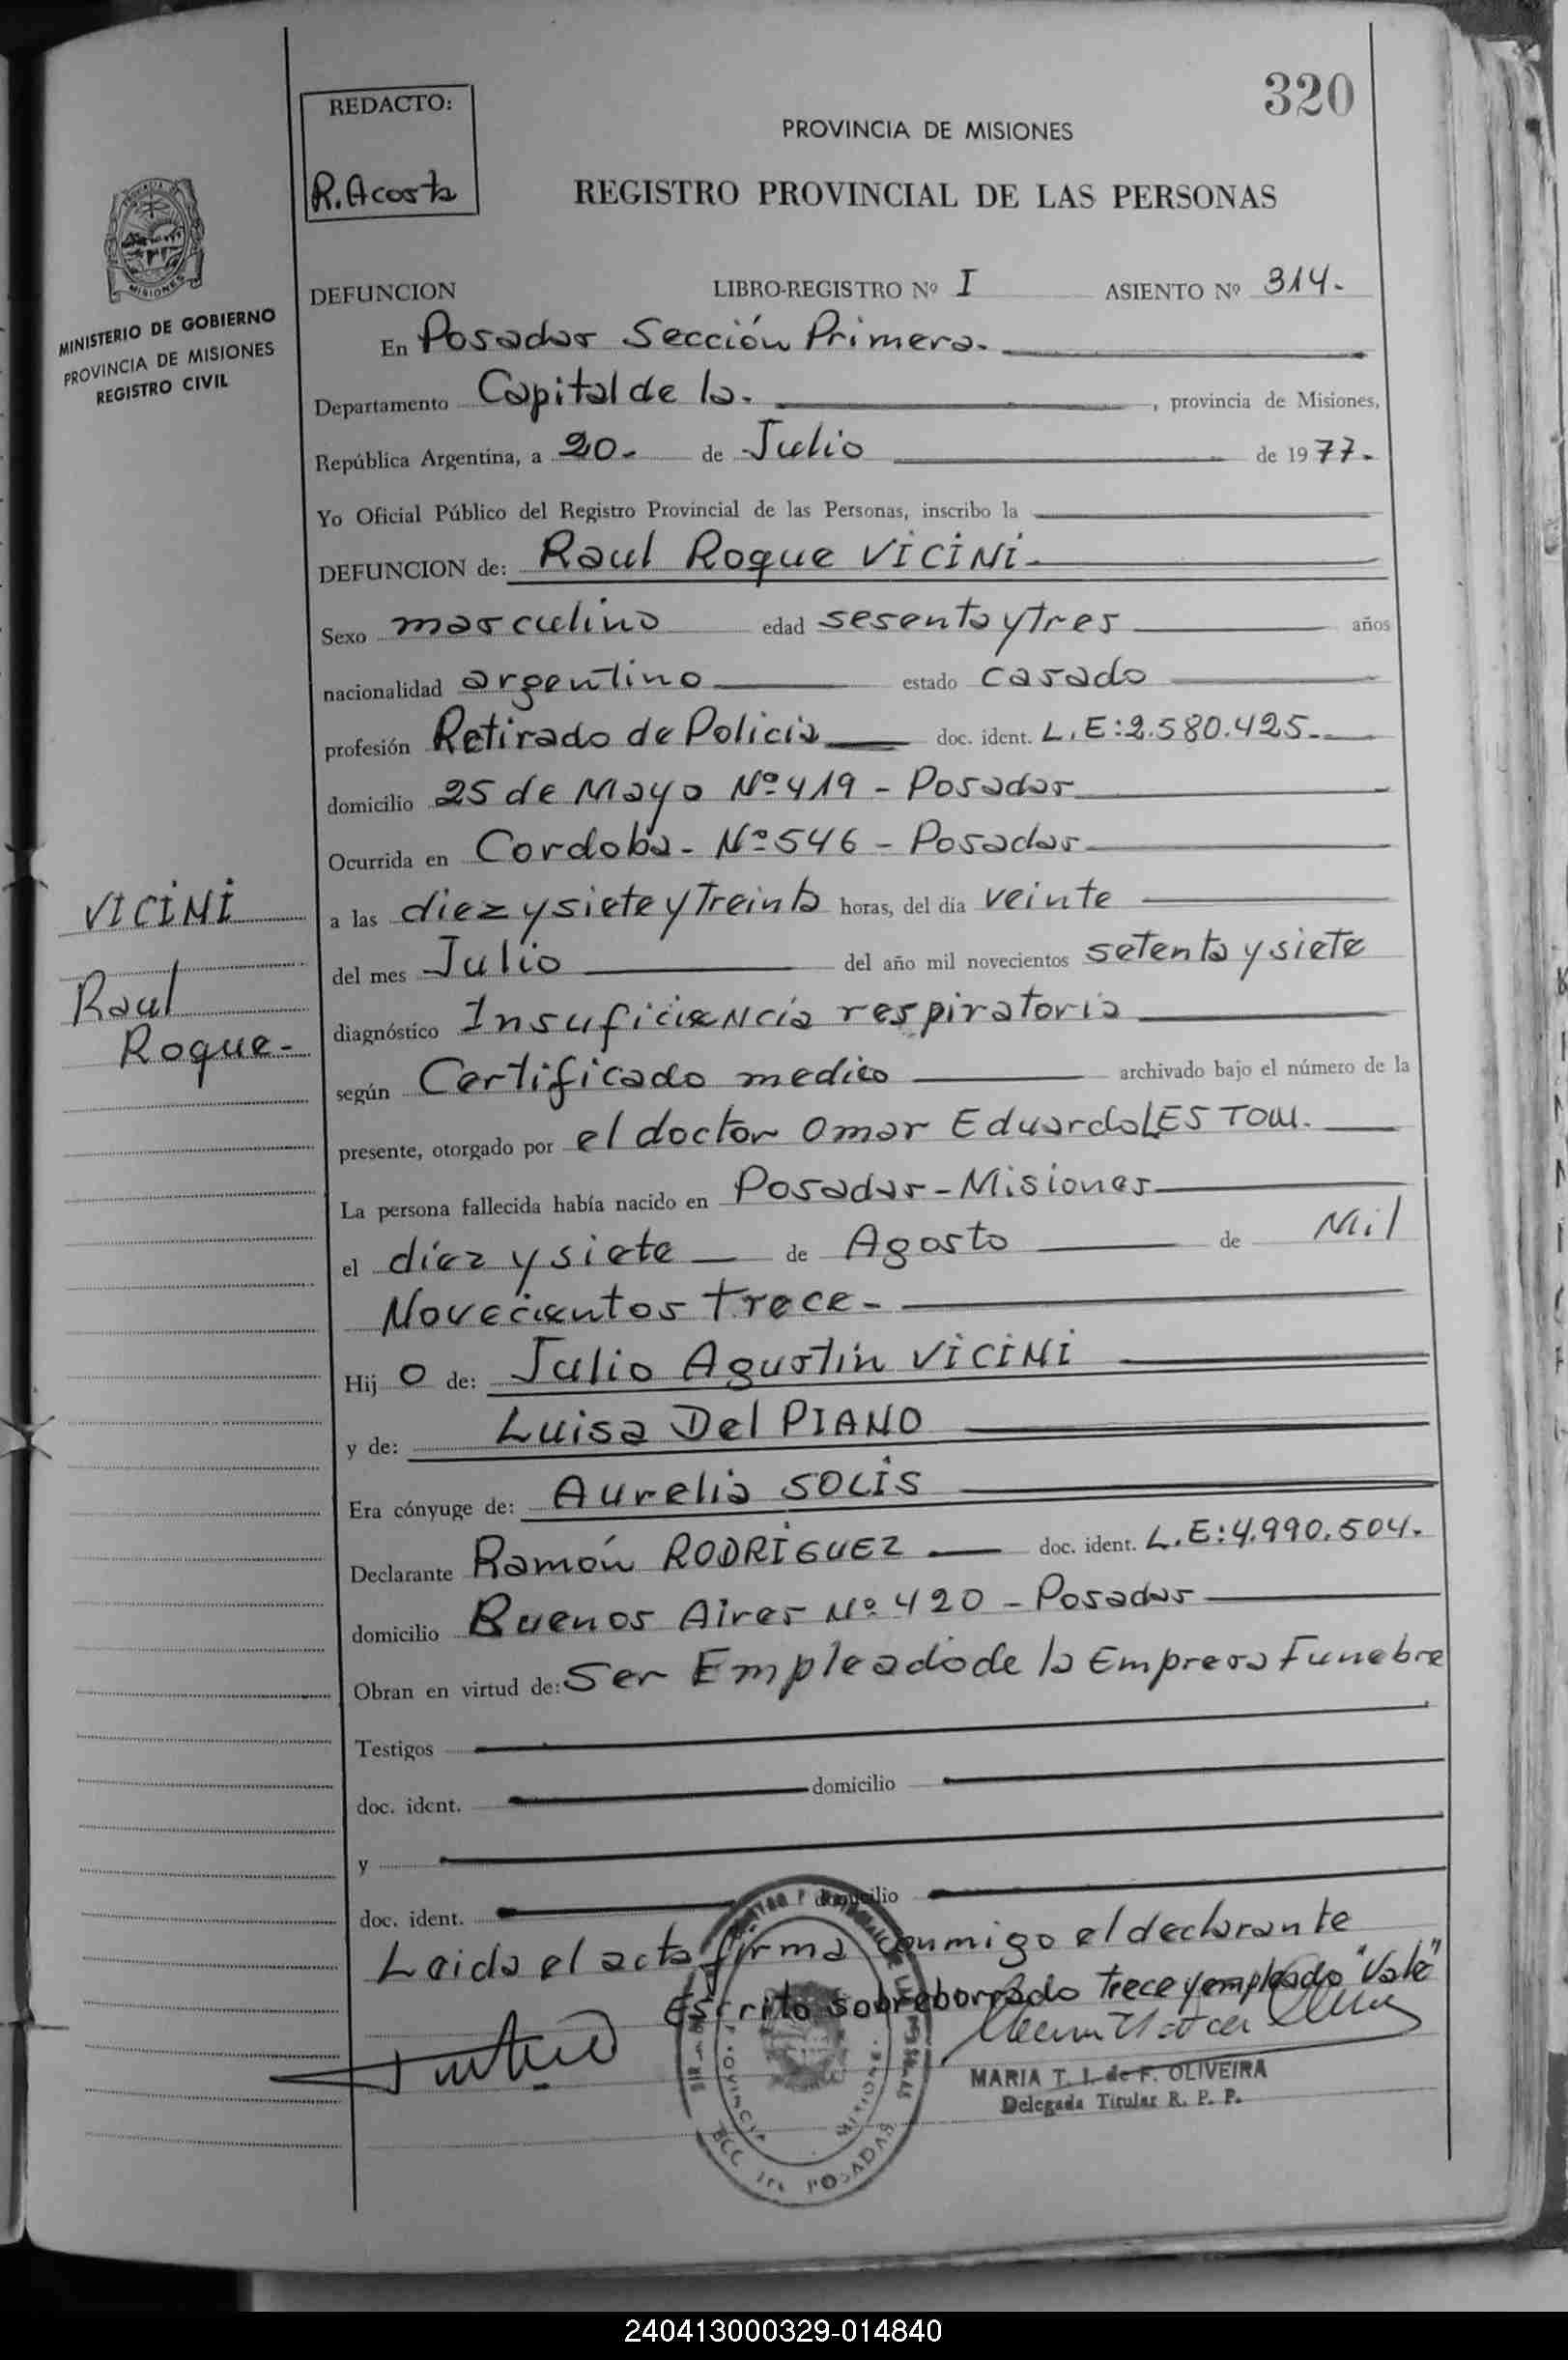 320
REDACTO:
R. Acosta
PROVINCIA DE MISIONES
REGISTRO PROVINCIAL DE LAS PERSONAS
MISIONES
MINISTERIO DE GOBIERNO
PROVINCIA DE MISIONES
REGISTRO CIVIL
DEFUNCION LIBRO-REGISTRO Nº I ASIENTO Nº 314.
En Posadas Sección Primera.
Departamento Capital de la. , provincia de Misiones,
República Argentina, a 20. de Julio de 1977.
Yo Oficial Público del Registro Provincial de las Personas, inscribo la
DEFUNCION de: Raul Roque VICINI
Sexo masculino edad sesenta y tres años
nacionalidad argentino estado casado
profesión Retirado de Policia doc. ident. L.E:2.580.425.
domicilio 25 de Mayo Nº 419 - Posadas
Ocurrida en Cordoba - Nº 546 - Posadas
VICINI
Raul
Roque-
a las diez y siete y Treinta horas, del día veinte
del mes Julio del año mil novecientos setenta y siete
diagnóstico Insuficiencia respiratoria
según Certificado medico archivado bajo el número de la
presente, otorgado por el doctor Omar Eduardo
La persona fallecida había nacido en Posadas - Misiones
el diez y siete de Agosto de Mil
Novecientos trece-
Hij o de: Julio Agustin VICINI
y de: Luisa Del PIANO
Era cónyuge de: Aurelia SOLIS
Declarante Ramón RODRIGUEZ doc. ident. L.E:4.990.504.
domicilio Buenos Aires Nº 420 - Posadas
Obran en virtud de: Ser Empleado de la Empresa Funebre
Testigos
doc. ident. domicilio
y
doc. ident. domicilio
Leida el acta firma conmigo el declarante
Escrito sobreborrado trece y empleado "Vale"
MARIA T. I. de F. OLIVEIRA
Delegada Titular R. P. P.
POSADAS
240413000329-014840